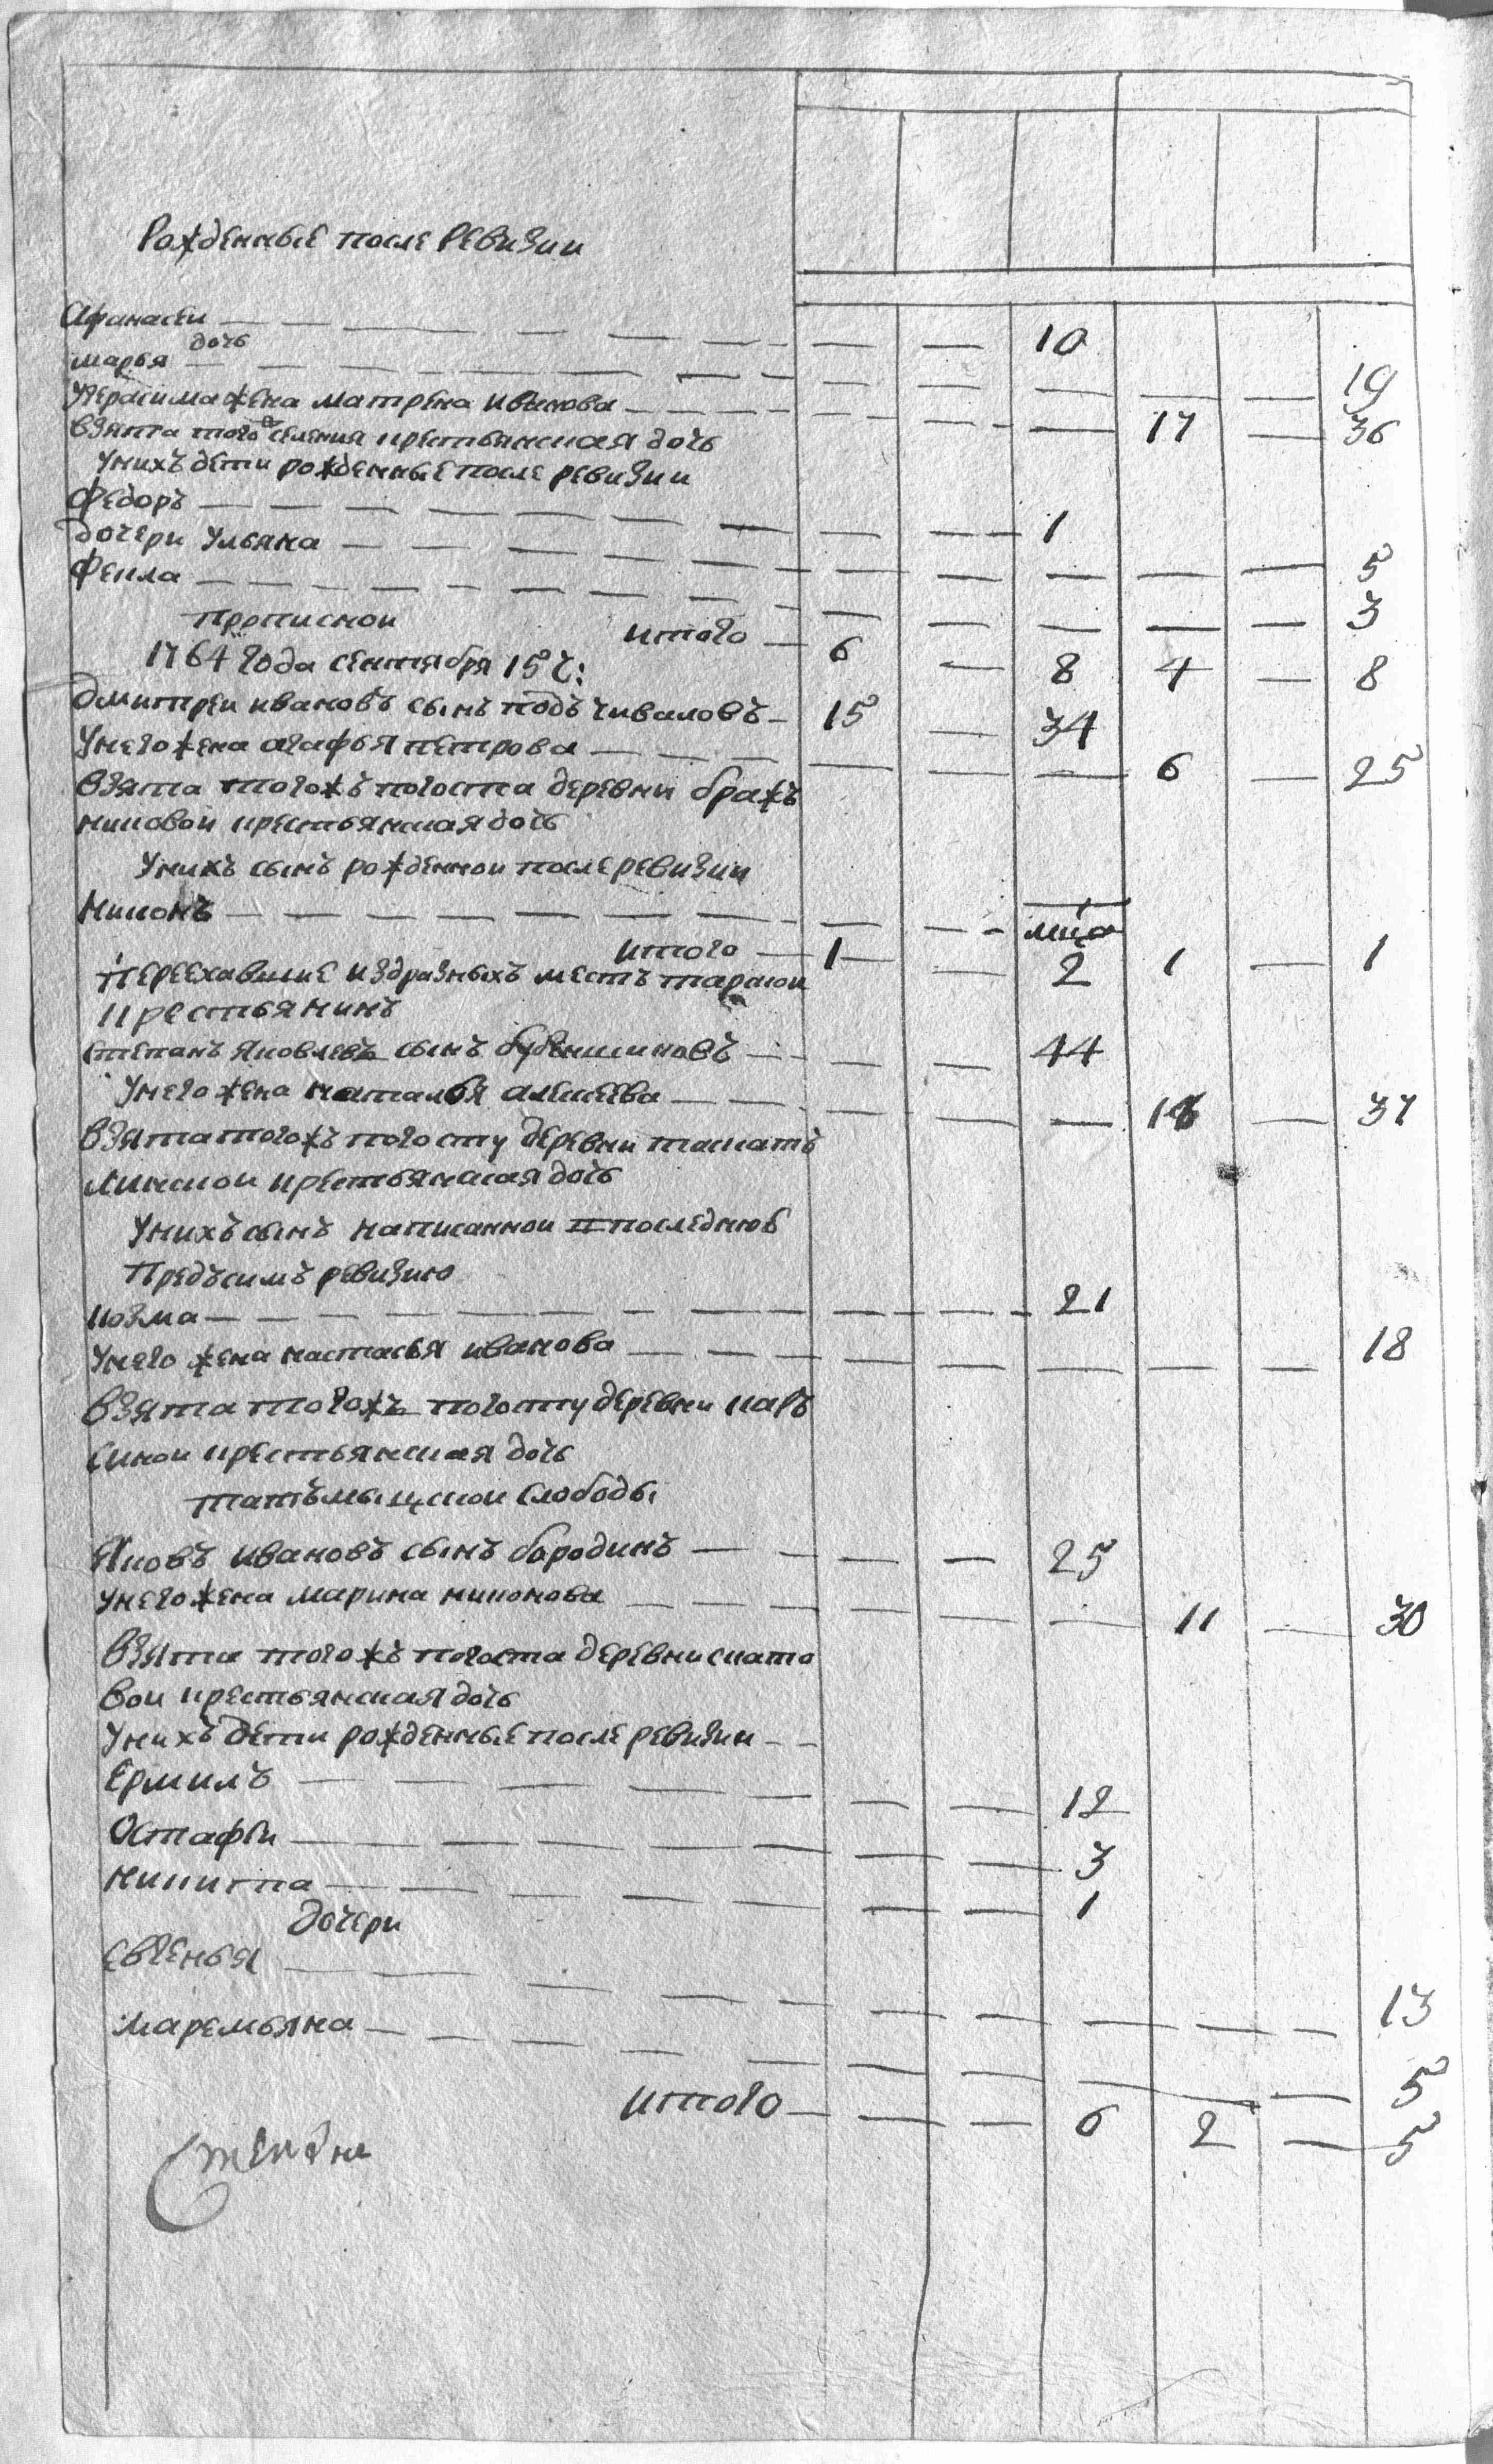 Рожденные после ревизии
Афанасеи — — — 10
дочь
марья — — — — — — 19
У герасима жена матрена иванова — — — 17 — 36
взята того селения крестьянская дочь
У нихъ дети рожденные после ревизии
Федоръ — — — 1
дочери Ульяна — — — — — — 5
Фекла — — — — — — 3
прописнои итого — 6 — 8 4 — 8
1764 года сентября 15 ч:
Дмитреи ивановъ сынъ подъчиваловъ — 15 — 34
У него жена агафья петрова — — — 6 — 25
взята тогожъ погоста деревни бражъ
никовои крестьянская дочь
У нихъ сынъ рожденнои после ревизии
Никонъ — — —
итого — 1 — 2 1 — 1
Переехавшие изъразныхъ местъ тарскои
крестьянинъ
степанъ яковлевъ сынъ бубенщиковъ — — 44
У него жена наталья алексеева — — — 16 — 37
взята тогожъ погосту деревни ташатъ
линскои крестьянская дочь
У нихъ сынъ написаннои последнюю
Предъсимъ ревизию
козма — — — 21
У него жена настасья иванова — — — — — 18
взята тогожъ погосту деревни карь
синои крестьянская дочь
татъмыцкои слободы
Яковъ ивановъ сынъ бородинъ — — — 25
У него жена марина никонова — — — 11 — 30
взята тогожъ погоста деревни скато
вои крестьянская дочь
У нихъ дети рожденные после ревизии — —
Ермилъ — — — 12
Остафеи — — — 3
никита — — — 1
дочери
Евгенья — — — — — — 13
маремьяна — — — — — — 5
итого — — — 6 2 — 5